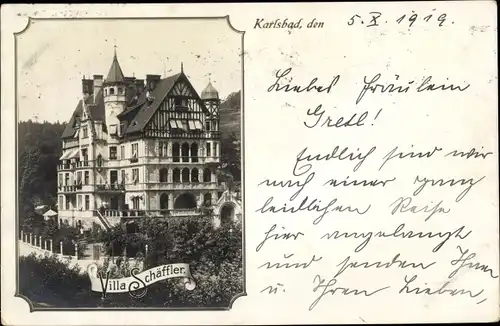 Karlsbad, den 5. X. 1919.
Liebes Fräulein
Gretl!
Endlich sind wir
nach einer ganz
leidlichen Reise
hier angelangt
und senden Ihnen
u. Ihren Lieben,
Villa Schäffler.